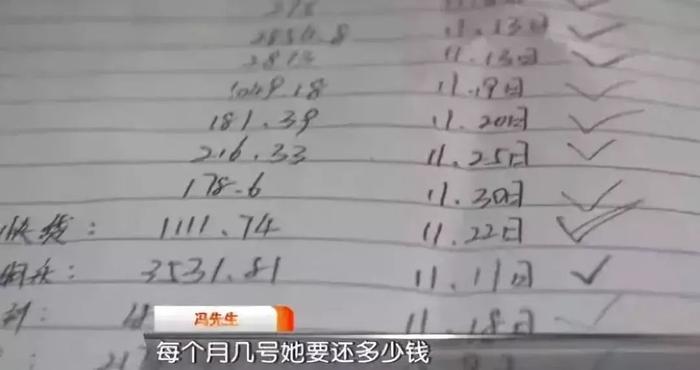 2854.8 11.13日
2813 11.13日
1049.18 11.19日
181.39 11.20日
216.33 11.25日
178.6 11.30日
快钱: 1111.74 11.22日
3531.81 11.11日
11.18日
冯先生
每个月几号她要还多少钱